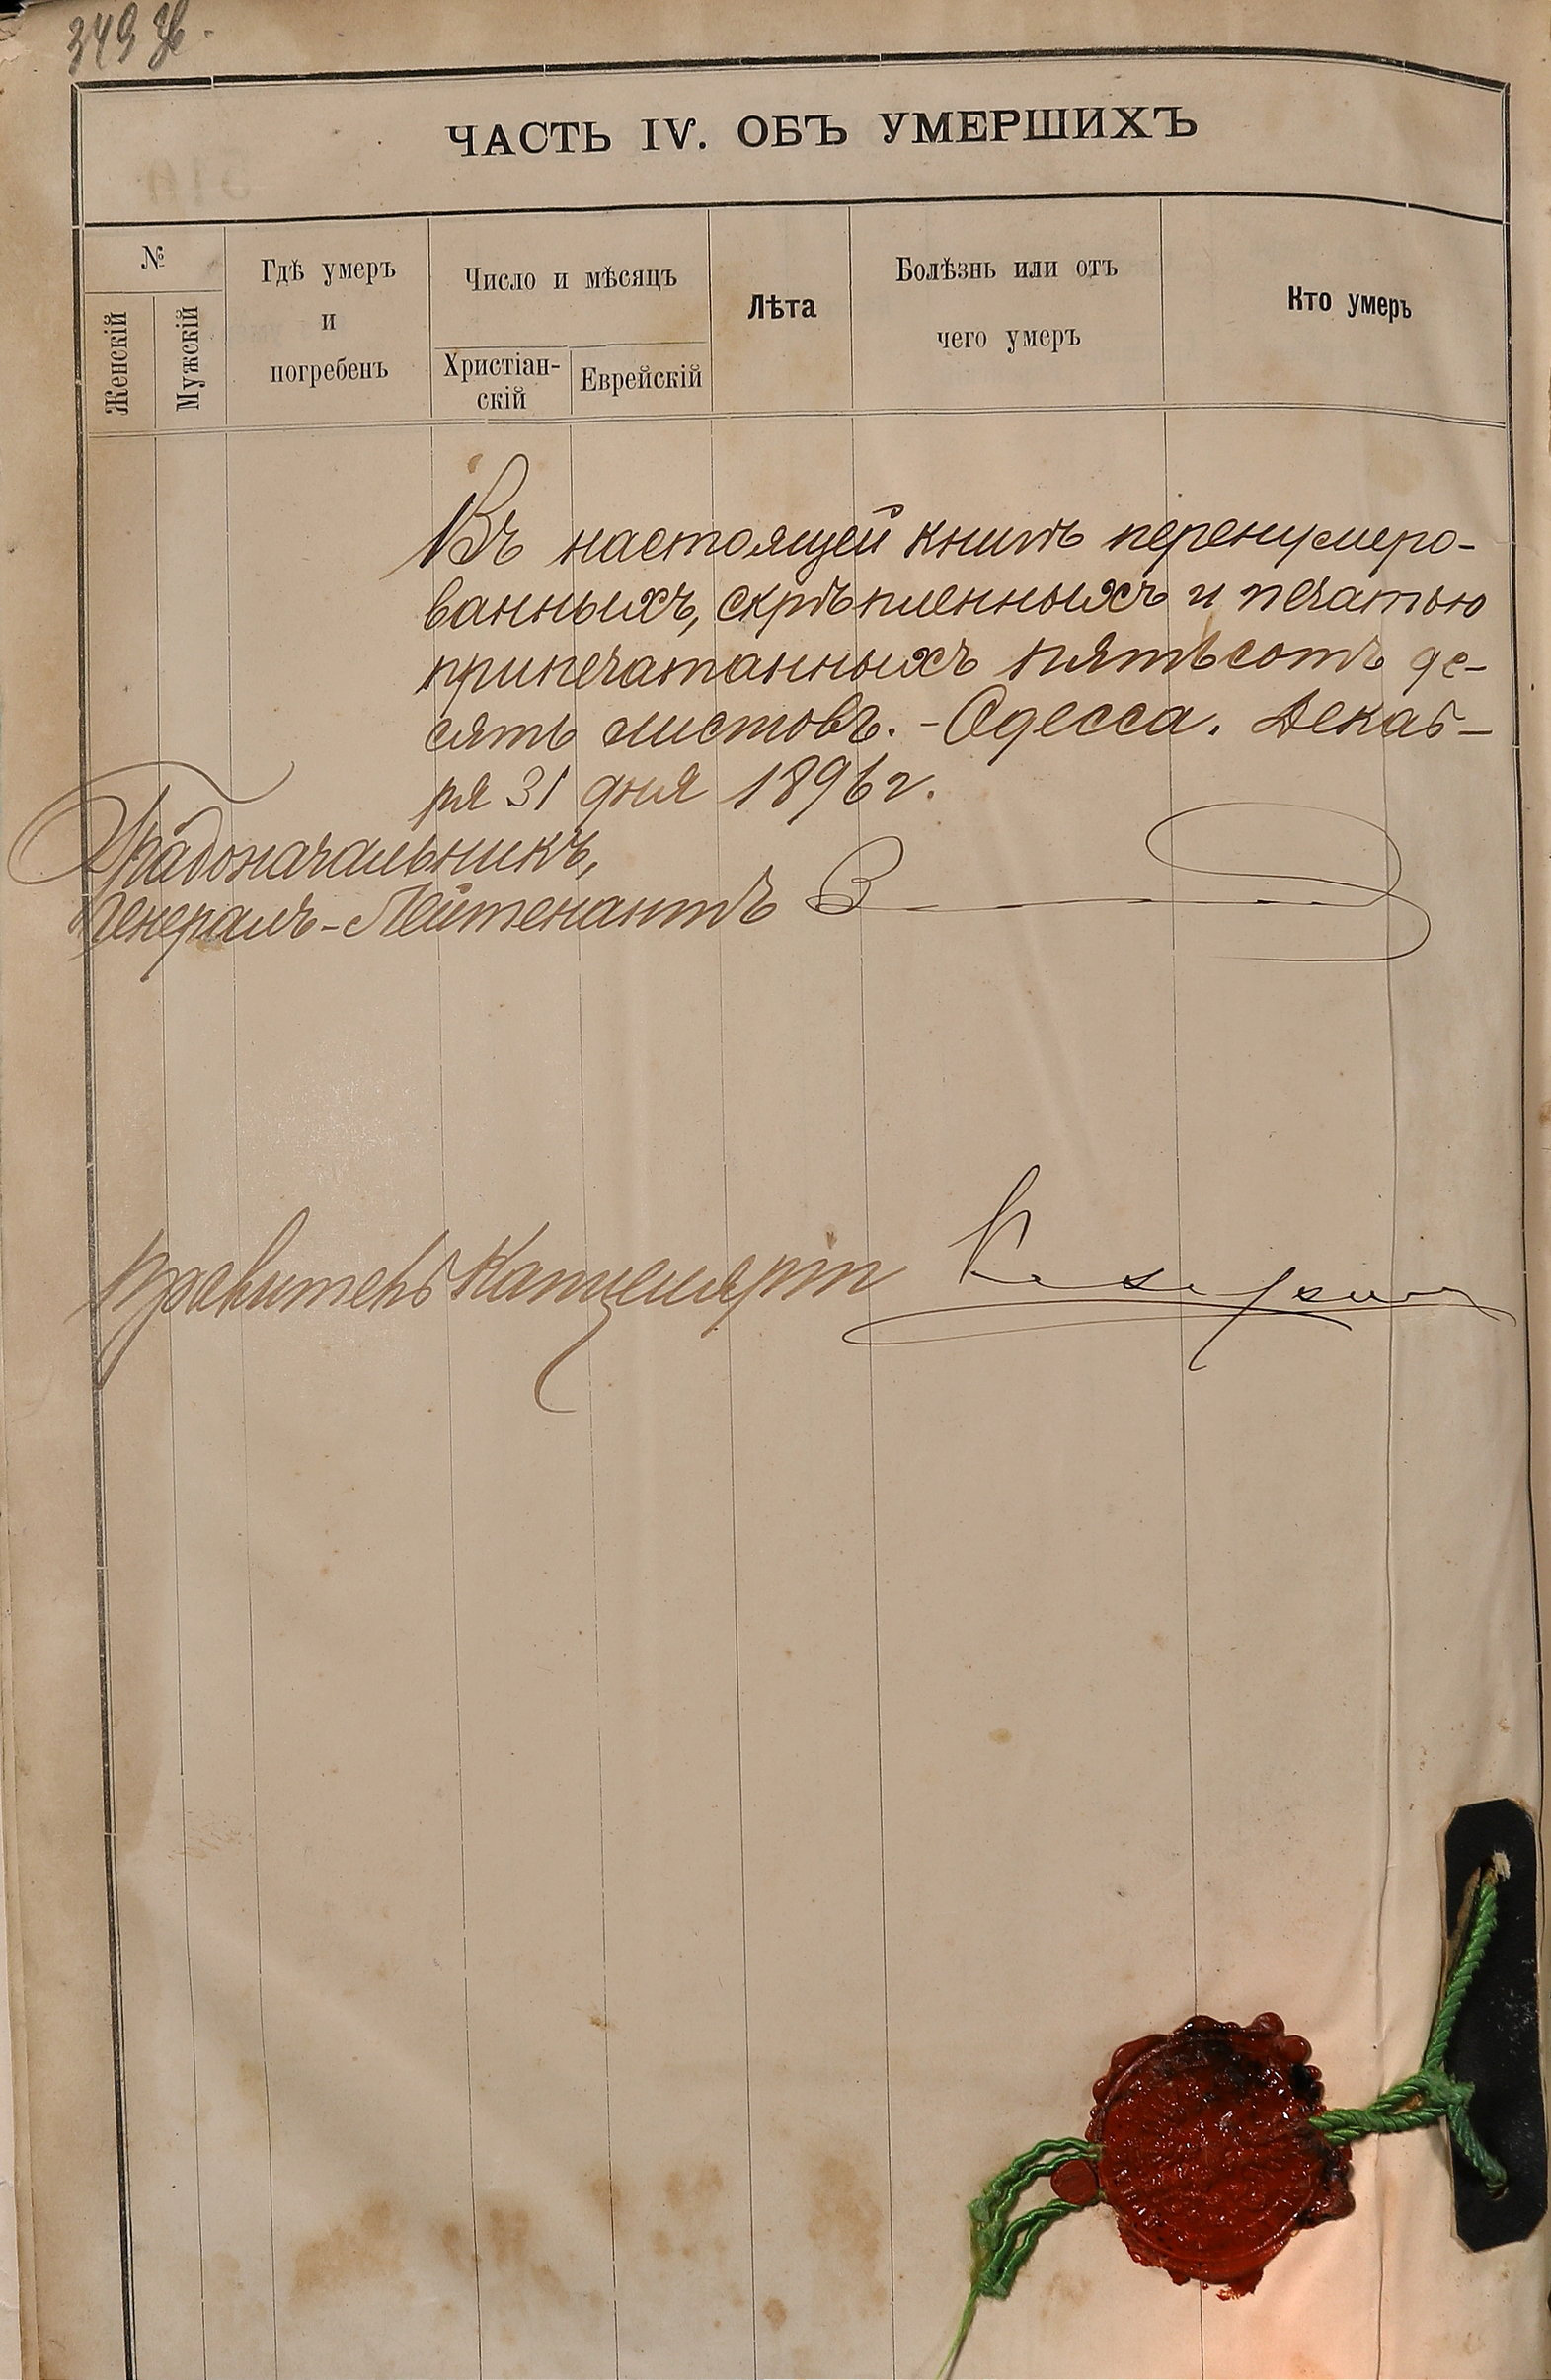 349
ЧАСТЬ IV. ОБЪ УМЕРШИХЪ
№
Женскій
Мужскій
Гдѣ умеръ
и
погребенъ
Число и мѣсяцъ
Христіан-
скій
Еврейскій
Лѣта
Болѣзнь или отъ
чего умеръ
Кто умеръ
Въ настоящей книгѣ перенумеро-
ванныхъ, скрѣпленныхъ и печатью
припечатанныхъ пятьсотъ де-
сять листовъ. - Одесса. Декаб-
ря 31 дня 1896 г.
Градоначальникъ,
Генералъ-Лейтенантъ
Правитель Канцеляріи